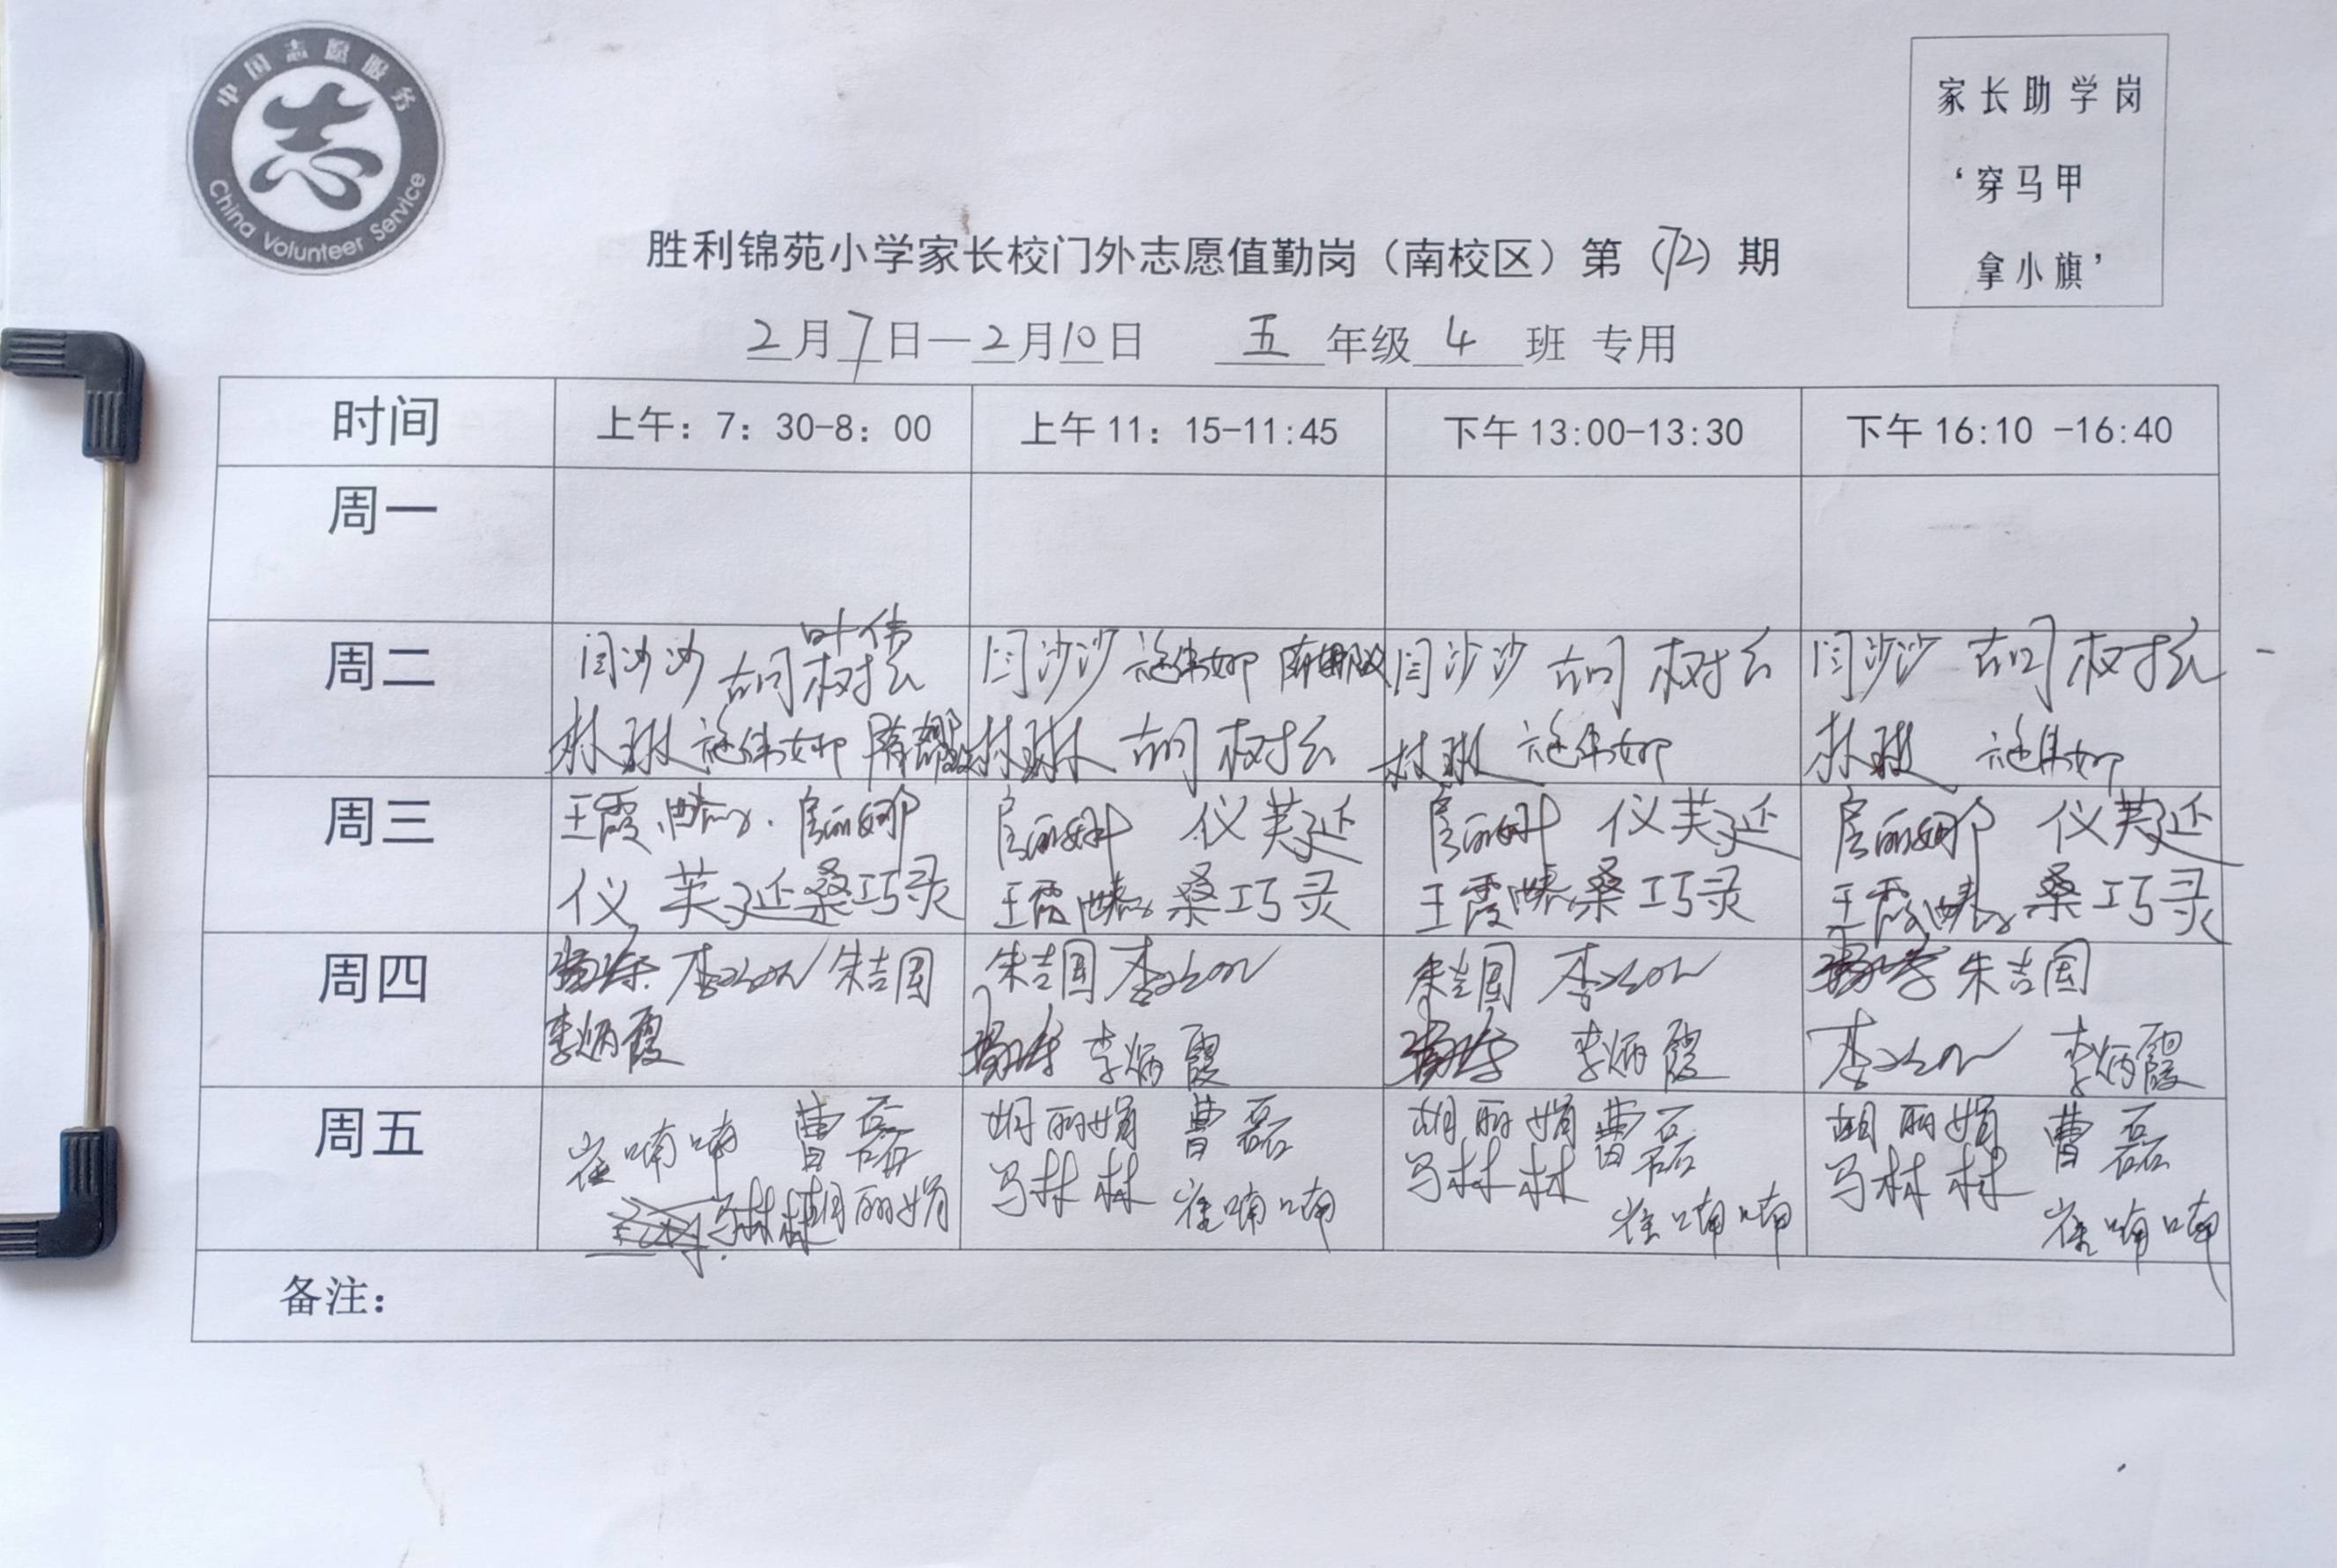 中国志愿服务
志
China Volunteer Service
家长助学岗
‘穿马甲
拿小旗’
胜利锦苑小学家长校门外志愿值勤岗（南校区）第（72）期
2月7日—2月10日 五年级4班 专用
时间 上午：7：30-8：00 上午11：15-11:45 下午13:00-13:30 下午16:10 -16:40
周一
周二
叶伟
闫沙沙 胡树云
林琳 施伟娜
闫沙沙 施伟娜
林琳 胡树云
闫沙沙 胡树云
林琳 施伟娜
闫沙沙 胡树云
林琳 施伟娜
周三
王霞 房丽娜
仪芙延 桑巧灵
房丽娜 仪芙延
王霞 桑巧灵
房丽娜 仪芙延
王霞 桑巧灵
房丽娜 仪芙延
王霞 桑巧灵
周四
朱吉国
李炳霞
朱吉国
李炳霞
朱吉国
李炳霞
朱吉国
李炳霞
周五
崔喃喃 曹磊
马林林 胡丽娟
胡丽娟 曹磊
马林林 崔喃喃
胡丽娟 曹磊
马林林 崔喃喃
胡丽娟 曹磊
马林林 崔喃喃
备注：